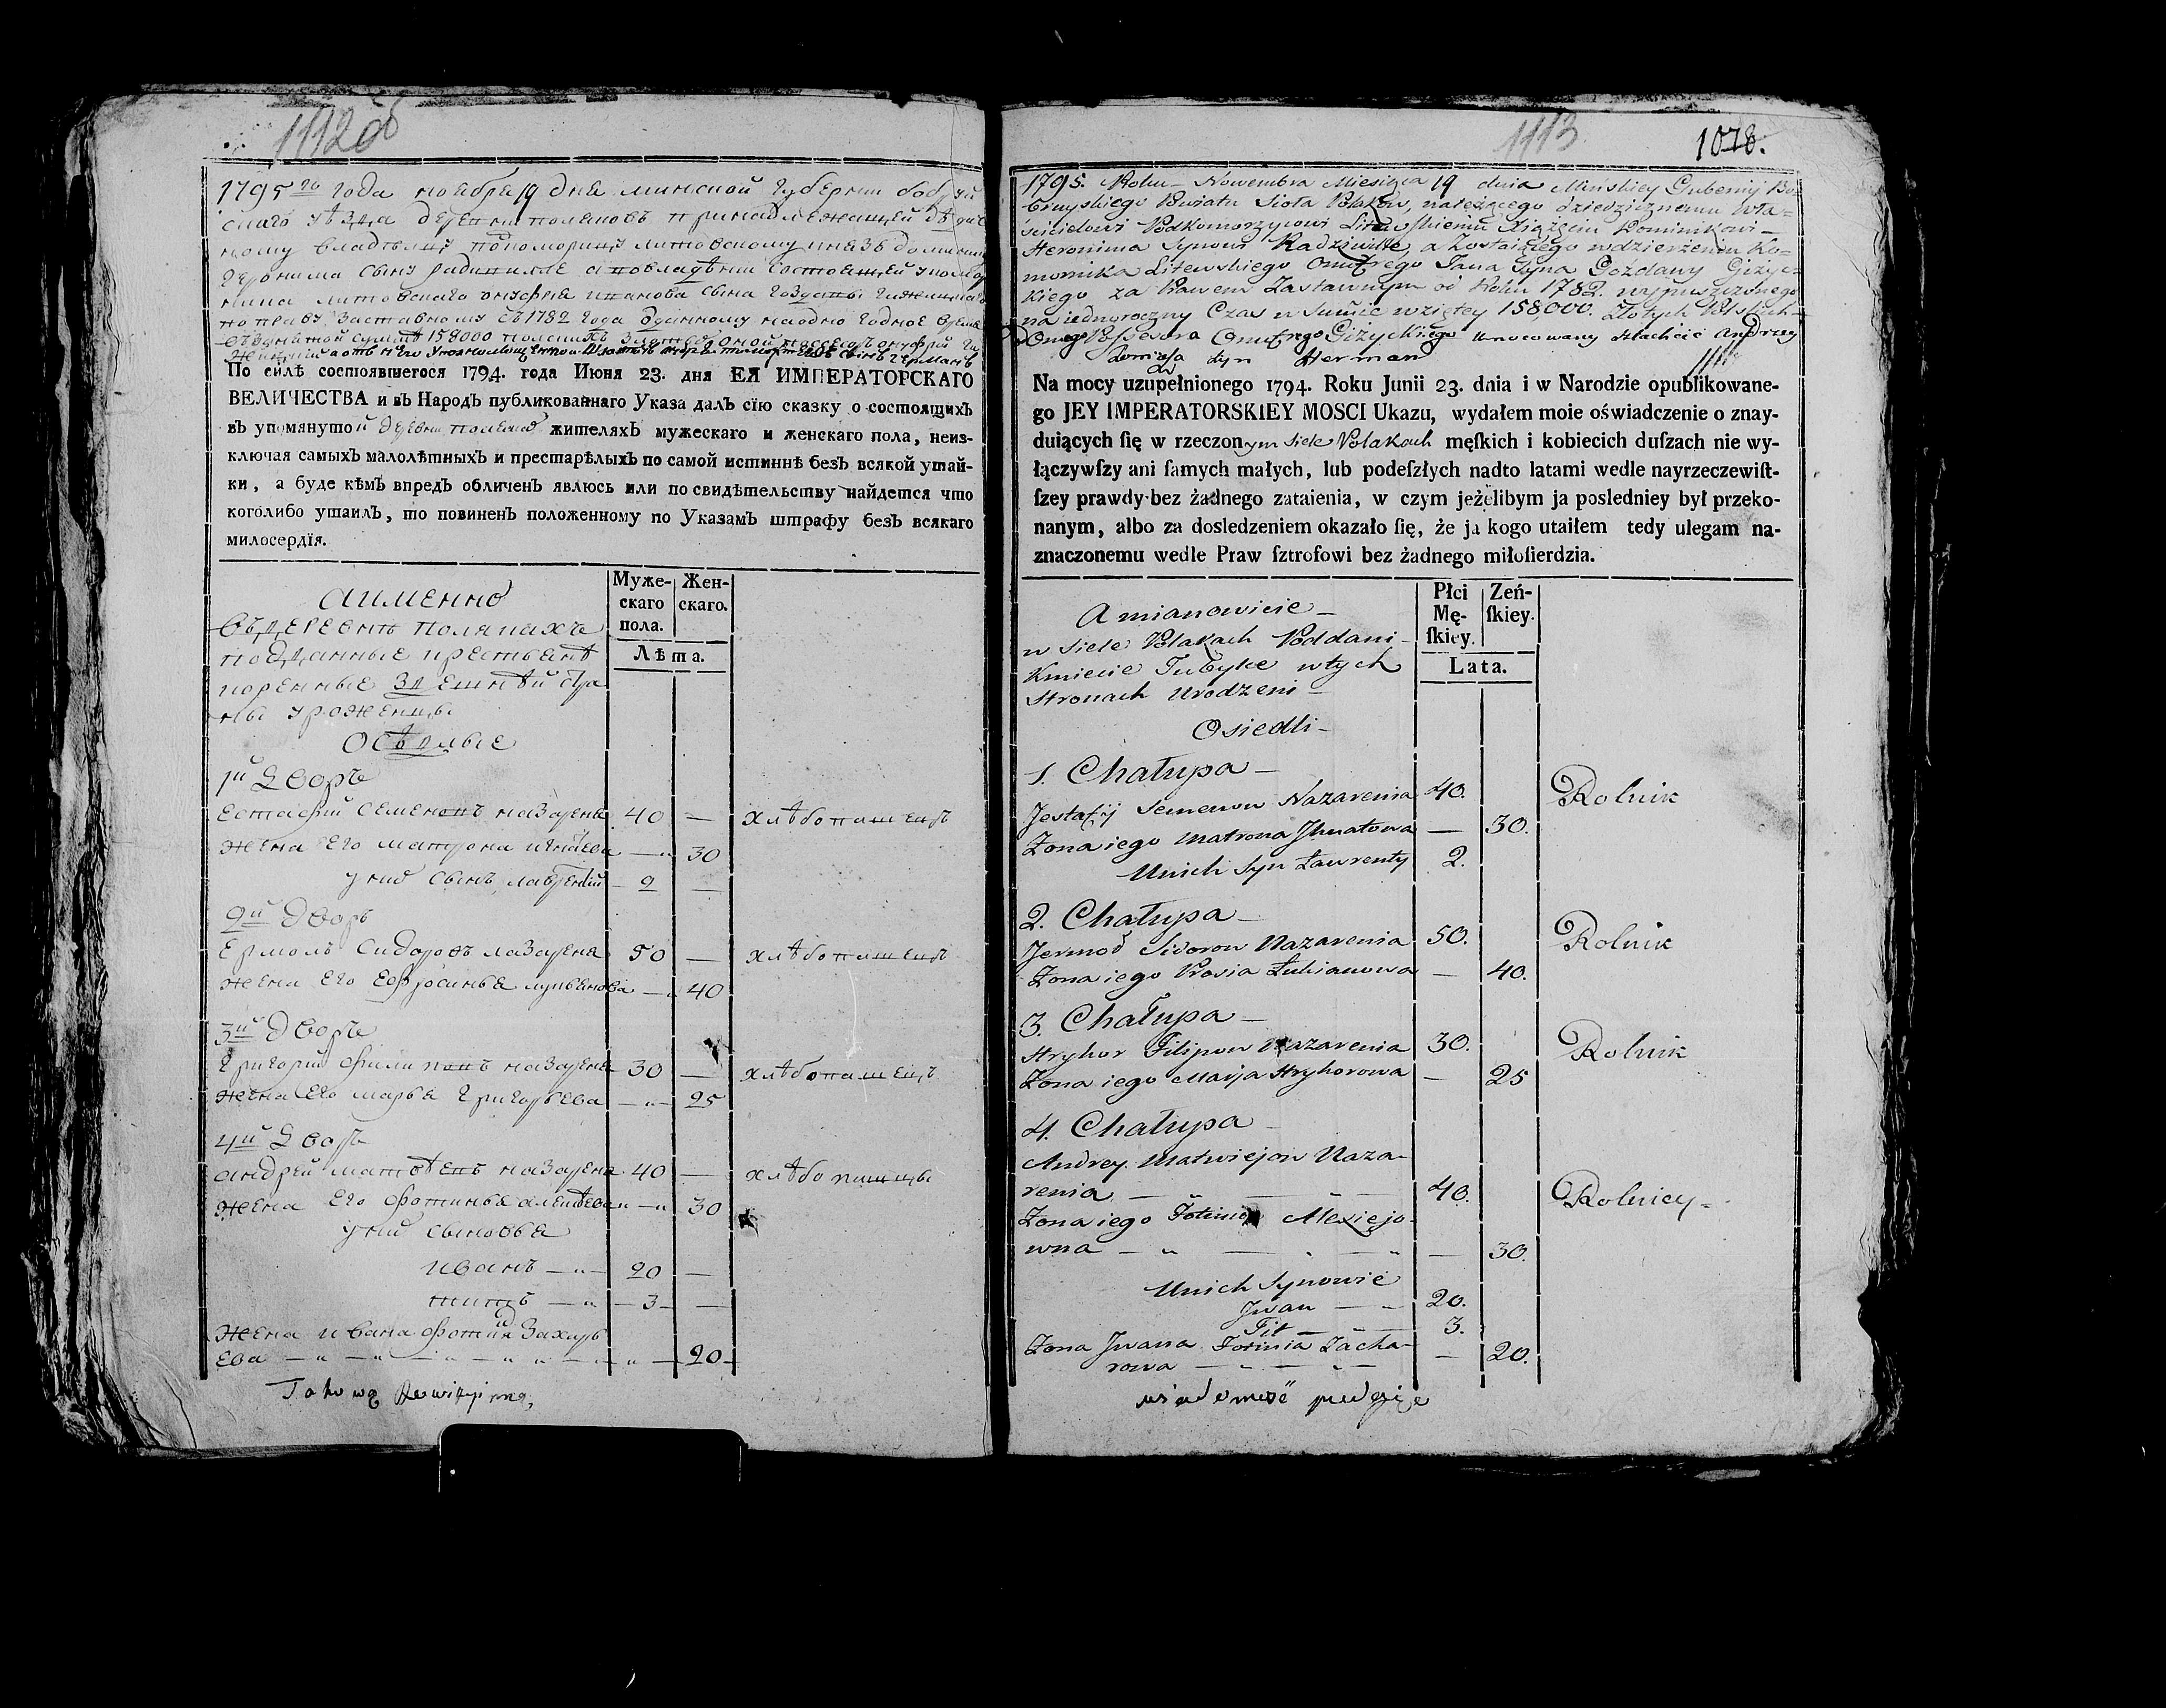 1112об
1795го года ноября 19 дня минской губернии бобруй
скаго уѣзда деревни поляковъ принадлежащей
ному владѣльцу подкоморицу литовскому князь доминик
геронима сыну радивиллѣ а повладѣнии состоящей
литовскаго онуфрия иванова сына гозданы гижицкаго
по праву заставному съ 1782 года данному на одно годное время
158000 польскихъ
По силѣ состоявшегося 1794. года Июня 23. дня ЕЯ ИМПЕРАТОРСКАГО
ВЕЛИЧЕСТВА и въ Народъ публикованнаго Указа далъ сїю сказку о состоящихъ
въ упомянутой деревни поляков жителяхъ мужескаго и женскаго пола, неиз-
ключая самыхъ малолѣтныхъ и престарѣлыхъ по самой истиннѣ безъ всякой утай-
ки, а буде кѣмъ впредь обличенъ явлюсь или по свидѣтельству найдется что
коголибо утаилъ, то повиненъ положенному по Указамъ штрафу безъ всякаго
милосердїя.
Муже-
скаго
пола.
Жен-
скаго.
Лѣта.
аименно
въ деревнѣ поляпахъ
подданные крестьянѣ
коренные здешнѣй стра
ны уроженцы
осѣдлые
1й Дворъ
естафий семеновъ назареня 40 — хлѣбопашецъ
жена его матрона игнатева — 30
у них сынъ лаврентий 2 —
2й дворъ
ермолъ сидоровъ назареня 50 — хлѣбопашецъ
жена его ефросинья лукьянова — 40
3й дворъ
григорий филиповъ назареня 30 — хлѣбопашецъ
жена его марья григорьева — 25
4й Дворъ
андрей матвѣевъ назареня 40 — хлѣбопашцы
жена его фотинья алексѣева — 30
у них сыновья
иванъ — 20 —
титъ — 3 —
жена ивана фотиния захарь
ева — 20
Takową Rewizyiną
1113
1078.
1795. Roku Nowembra Miesiąca 19 dnia Mińskiey Gubernij Bo-
bruyskiego Powiatu Sioła Polakow, należącego dziedzicznemu Wła-
ścicielowi Podkomorzycowi Litewskiemu Xiążęciu Dominikowi
Heronima Synowi Radziwille, a Zostaiącego wdzierżeniu Ko-
mornika Litewskiego Onufrego Jana Syna Gozdawy Giżyc-
kiego za Prawem Zastawnym od Roku 1782. wypuszczonego
na iednoroczny Czas w Summie wziętey 158,000. Złotych Polskich
Onego Possesora Onufrego Giżyckiego Umocowany szlachcic Andrzey
Tomasza Syn Herman
Na mocy uzupełnionego 1794. Roku Junii 23. dnia i w Narodzie opublikowane-
go JEY IMPERATORSKIEY MOSCI Ukazu, wydałem moie oświadczenie o znay-
duiących ſię w rzeczonym Siele Polakach męſkich i kobiecich duſzach nie wy-
łączywſzy ani ſamych małych, lub podeſzłych nadto latami wedle nayrzeczewiſt-
ſzey prawdy bez żadnego zataienia, w czym jeżelibym ja posledniey był przeko-
nanym, albo za dosledzeniem okazało ſię, że ja kogo utaiłem tedy ulegam na-
znaczonemu wedle Praw ſztrofowi bez żadnego miłoſierdzia.
Płci
Mę-
ſkiey.
Zeń-
ſkiey.
Lata.
A mianowicie
w Siele Polakach Poddani
Kmiecie Tubylce wtych
Stronach Urodzeni
Osiedli
1. Chałupa
Jestafij Semenow Nazarenia 40. Rolnik
Zona iego Matrona Jhnatowa — 30.
Unich Syn Ławrenty 2.
2. Chałupa
Jermoł Sidorow Nazarenia 50. Rolnik
Zona iego Prosia Łukianowa — 40.
3. Chałupa
Hryhor Filipow Nazarenia 30. Rolnik
Zona iego Marja Hryhorowa — 25
4. Chałupa
Andrey Matwiejow Naza-
renia — 40. Rolnicy
Zona iego Fotinia Alexiejo-
wna — 30.
Unich Synowie
Jwan — 20.
Tit — 3.
Zona Jwana Fotinia Zacha-
rowa — 20.
wiadomość